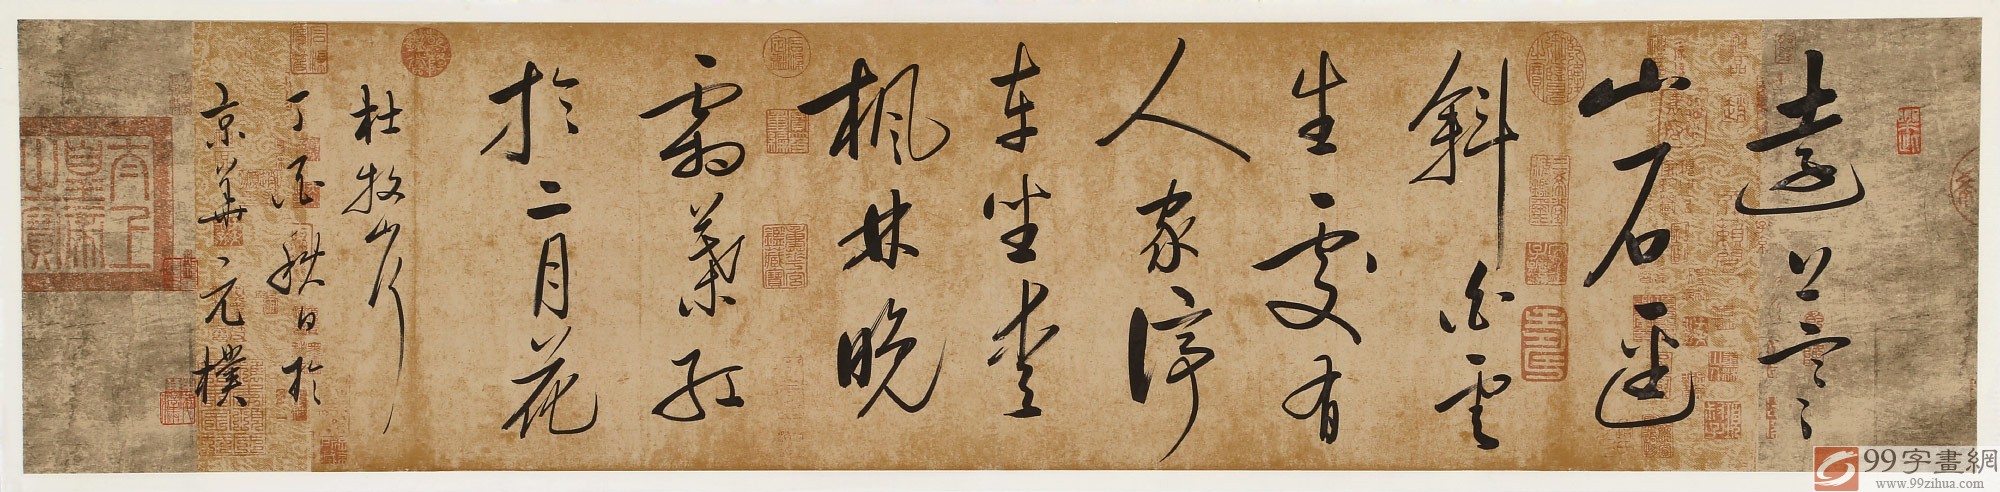 遠上寒
山石逕
斜白雲
生處有
人家停
車坐愛
楓林晚
霜葉紅
於二月花
杜牧山行
丁酉秋日於
京華元樸
太上
皇帝
之寶
99字畫網
www.99zihua.com